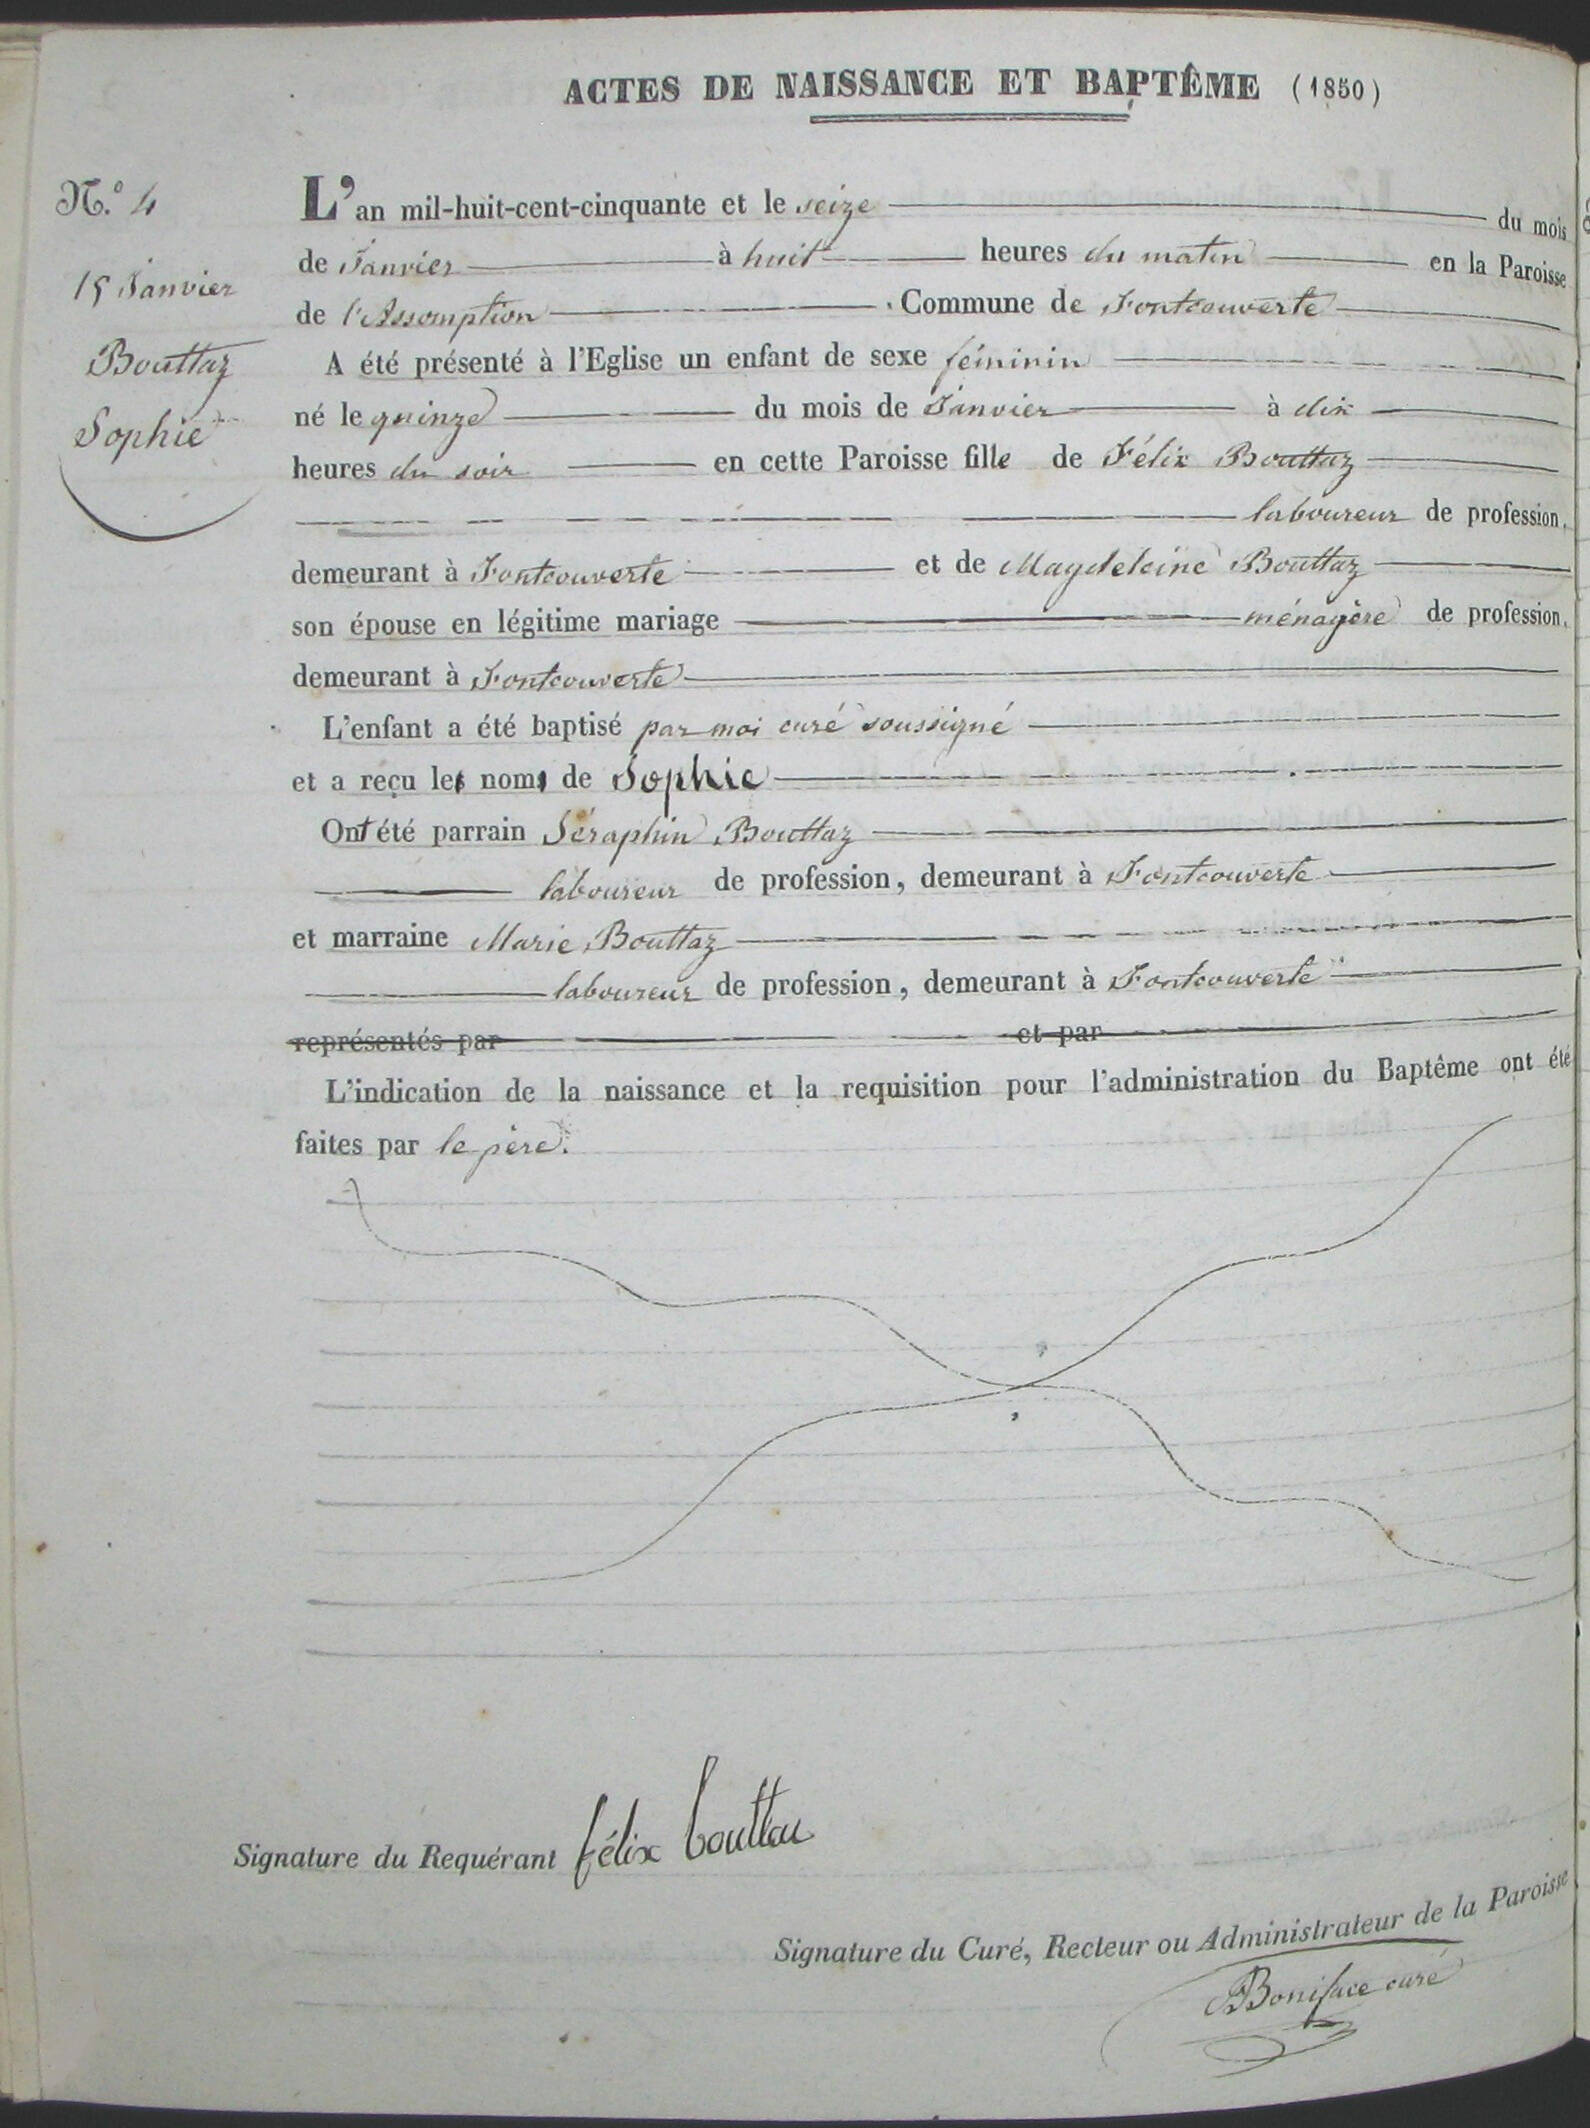 ACTES DE NAISSANCE ET BAPTÊME (1850)
N.º 4
15 Janvier
Bouttaz
Sophie
L'an mil-huit-cent-cinquante et le seize du mois
de Janvier à huit heures du matin en la Paroisse
de l'Assomption Commune de Fontcouverte
A été présenté à l'Eglise un enfant de sexe féminin
né le quinze du mois de Janvier à dix
heures du soir en cette Paroisse fille de Félix Bouttaz
laboureur de profession,
demeurant à Fontcouverte et de Magdeleine Bouttaz
son épouse en légitime mariage ménagère de profession,
demeurant à Fontcouverte
L'enfant a été baptisé par moi curé soussigné
et a reçu le nom de Sophie
Ont été parrain Séraphin Bouttaz
laboureur de profession, demeurant à Fontcouverte
et marraine Marie Bouttaz
laboureur de profession, demeurant à Fontcouverte
représentés par et par
L'indication de la naissance et la requisition pour l'administration du Baptême ont été
faites par le père.
Signature du Requérant félix bouttau
Signature du Curé, Recteur ou Administrateur de la Paroisse
Boniface curé